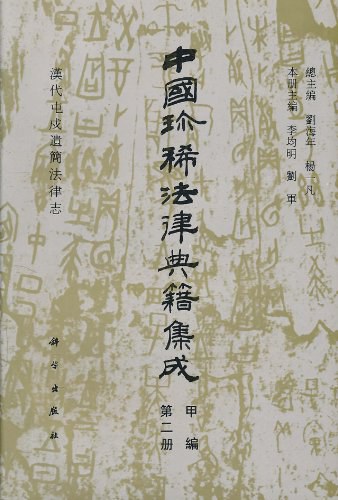 總主編 劉海年 楊一凡
本册主編 李均明 劉軍
中國珍稀法律典籍集成
甲編
第二册
漢代屯戍遺簡法律志
科学出版社